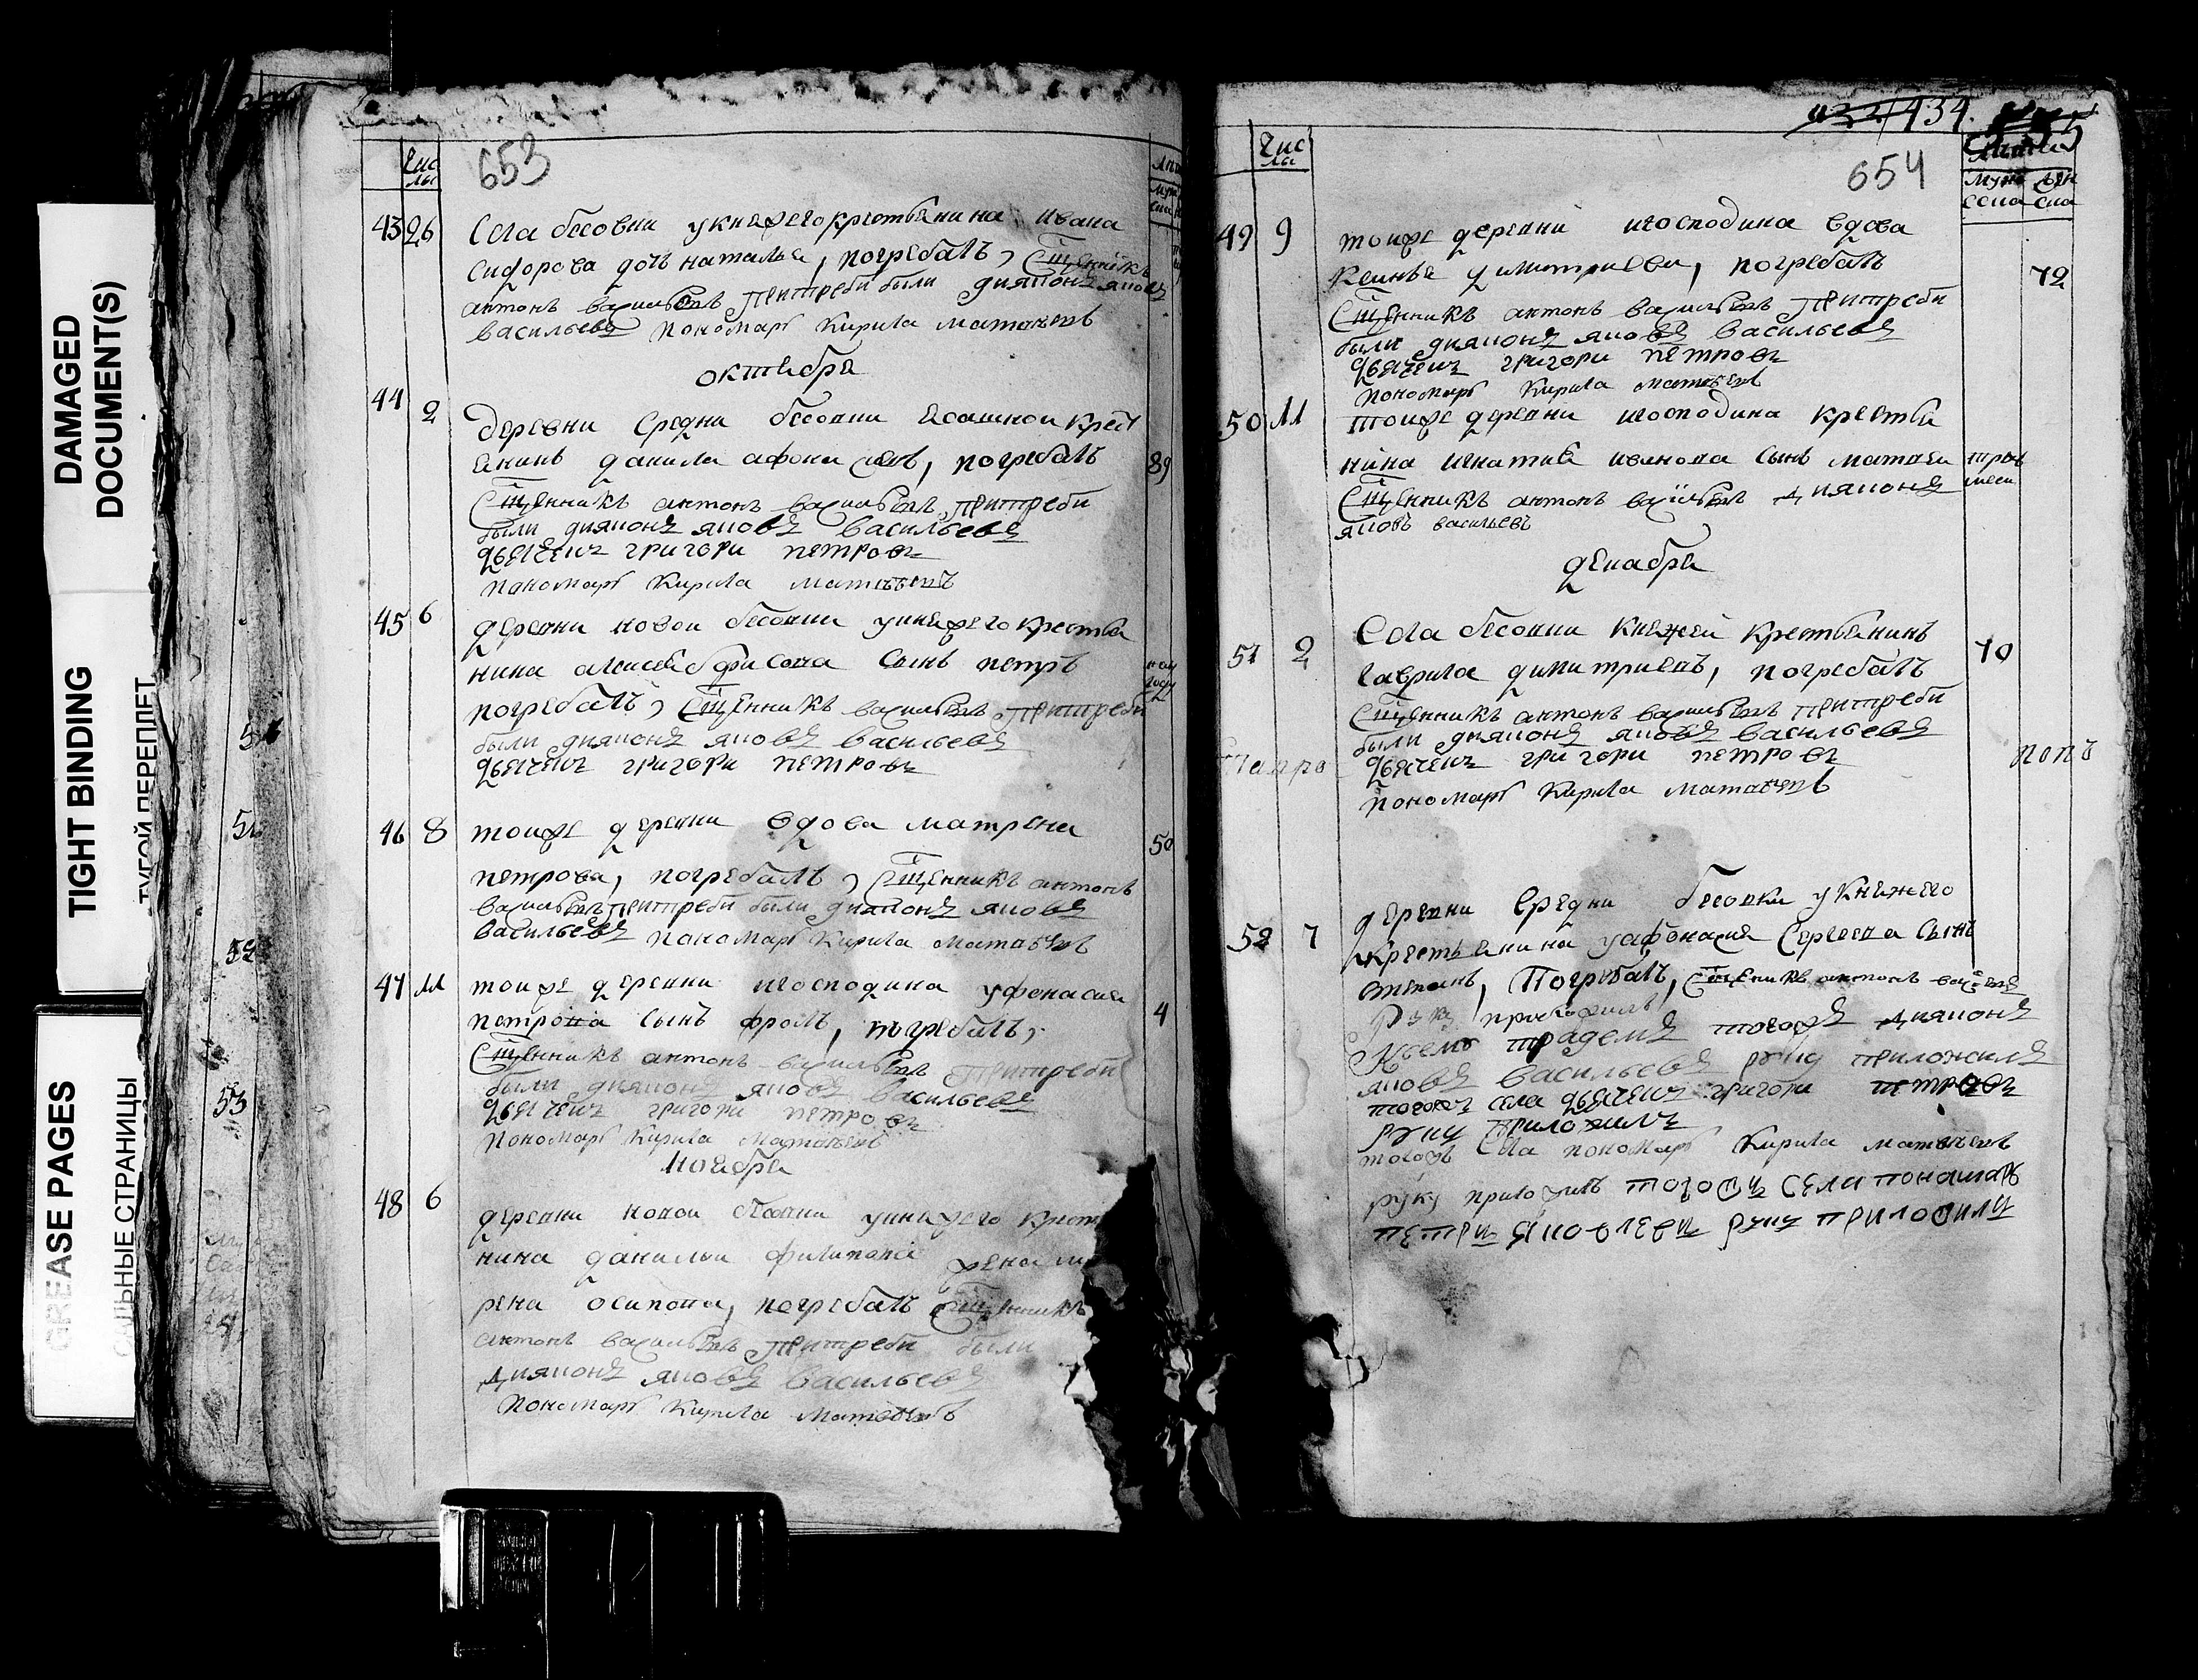 DAMAGED
DOCUMENT(S)
TIGHT BINDING
ТУГОЙ ПЕРЕПЛЕТ
GREASE PAGES
САЛЬНЫЕ СТРАНИЦЫ
653
Чис
лы
43 26 Села бесовки у княжего крестьянина ивана
сидорова дочь наталья, погребалъ, Сщенникъ
антонъ василевъ притреби были дияконъ яковъ
васильевъ пономарь Кирила матвеевъ
октября
44 2 деревни Средни бесовки ясашной крест
янинъ данила афонасевъ, погребалъ 89
Сщенникъ антонъ василевъ притреби
были дияконъ яковъ васильевъ
дьячекъ григори петровъ
пономарь Кирила матвеевъ
45 6 деревни новои бесовки у княжего крестья
нина алексея борисова сынъ петръ
погребалъ, Сщенникъ василевъ притреби
были дияконъ яковъ васильевъ
дьячекъ григори петровъ
46 8 тоиже деревни вдова матрена 50
петрова, погребалъ, Сщенникъ антонъ
василевъ притреби были дияконъ яковъ
васильевъ пономарь Кирила матвеевъ
47 11 тоиже деревни игосподина уфонасия
петрова сынъ фролъ, погребалъ, 4
Сщенникъ антонъ василевъ притреби
были дияконъ яковъ васильевъ
дьячекъ григори петровъ
пономарь Кирила матвеевъ
ноября
48 6 деревни новои бесовки у княжего крест
нина данилы филипова жена
рена осипова, погребалъ Сщенникъ
антонъ василевъ притреби были
дияконъ яковъ васильевъ
пономарь Кирила матвеевъ
434.
654
Чис
лы
муж жен
ска ска
49 9 тоиже деревни игосподина вдова
димитриева, погребалъ 72
Сщенникъ антонъ василевъ притреби
были дияконъ яковъ васильевъ
дьячекъ григори петровъ
пономарь Кирила матвеевъ
50 11 тоиже деревни игосподина крестья
нина игнатия иванова сынъ матвеи
Сщенникъ антонъ василевъ дияконъ
яковъ васильевъ
декабря
51 2 Села бесовки княжей крестьянинъ
гаврила димитриевъ, погребалъ 70
Сщенникъ антонъ василевъ притреби
были дияконъ яковъ васильевъ
дьячекъ григори петровъ
пономарь Кирила матвеевъ
попъ
52 7 деревни Средни бесовки у княжего
крестьянина уафонасия Сергеева сынъ
степанъ, Погребалъ, Сщеникъ антонъ
руку приложилъ
Ксемъ тетрадемъ тогожъ дияконъ
яковъ васильевъ руку приложилъ
тогожъ села дьячекъ григори петровъ
руку приложилъ
тогожъ села пономарь Кирила матвеевъ
руку приложилъ тогожъ села пономарь
петръ яковлевъ руку приложилъ